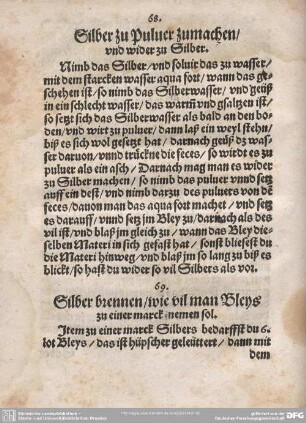 68.
Silber zu Puluer zumachen/
vnd wider zu Silber.
Nimb das Silber/vnd soluir das zu wasser/
mit dem starcken wasser aqua fort/wann das ge-
schehen ist/so nimb das Silberwasser/vnd geüß
in ein schlecht wasser/das warm̃ vnd gsaltzen ist/
so setzt sich das Silberwasser als bald an den bo-
den/vnd wirt zu puluer/dann laß ein weyl stehn/
biß es sich wol gesetzt hat/darnach geüß dz was-
ser daruon/vnnd trückne die feces/so wirdt es zu
puluer als ein asch/Darnach mag man es wider
zu Silber machen/so nimb das puluer vnnd setz
auff ein dest/vnd nimb darzu des puluers von dẽ
feces/dauon man das aqua fort machet/vnd setz
es darauff/vnnd setz jm Bley zu/darnach als des
vil ist/vnd blaß jm gleich zu/wann das Bley die-
selben Materi in sich gefast hat/sonst bliesest du
die Materi hinweg/vnd blaß jm so lang zu biß es
blickt/so hast du wider so vil Silbers als vor.
69.
Silber brennen/wie vil man Bleys
zu einer marck nemen sol.
Item zu einer marck Silbers bedarffst du 6.
lot Bleys/das ist hüpscher geleüttert/dann mit
dem